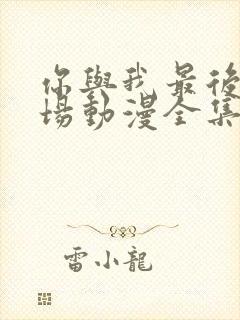 你與我最後
場動漫全集
雷小龍